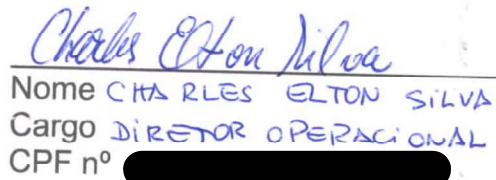 Charles Elton Silva
Nome CHARLES ELTON SILVA
Cargo DIRETOR OPERACIONAL
CPF nº